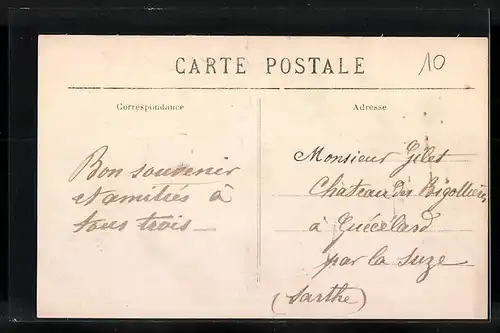 CARTE POSTALE
10
Correspondance
Adresse
Bon souvenir
et amitiés à
tous trois —
Monsieur Gilet
Château des Bigottières
à Guécélard
par la Suze
(Sarthe)